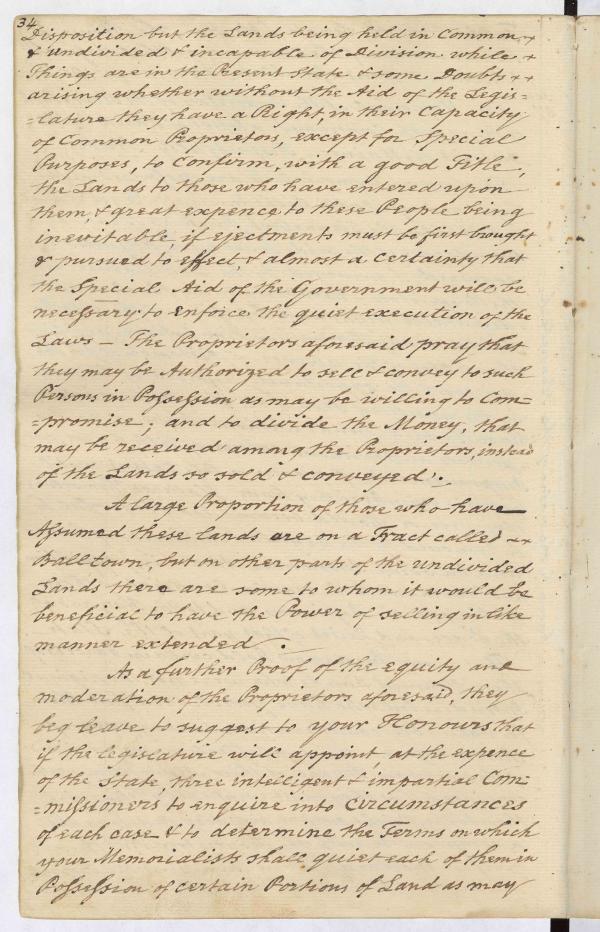 34
Disposition but the Lands being held in Common
& undivided & incapable of Division while
Things are in the Present State & some Doubts
arising whether without the Aid of the Legis=
=lature they have a Right, in their Capacity
of Common Proprietors, except for Special
Purposes, to Confirm, with a good Title,
the Lands to those who have entered upon
them, & great expence to these People being
inevitable, if ejectments must be first bought
& pursued to effect, & almost a certainty that
the Special Aid of the Government will be
necessary to enforce the quiet execution of the
Laws — The Proprietors aforesaid pray that
they may be Authorized to sell & convey to such
Persons in Possession as may be willing to Com=
=promise; and to divide the Money, that
may be received among the Proprietors, instead
of the Lands so sold & conveyed.
A large Proportion of those who have
Assumed these lands are on a Tract called
Balltown, but on other parts of the undivided
Lands there are some to whom it would be
beneficial to have the Power of selling in like
manner extended.
As a further Proof of the equity and
moderation of the Proprietors aforesaid, they
beg leave to suggest to your Honours that
if the legislature will appoint, at the expence
of the State, three intelligent & impartial Com=
=missioners to enquire into Circumstances
of each case & to determine the Terms on which
your Memorialists shall quiet each of them in
Possession of certain Portions of Land as may